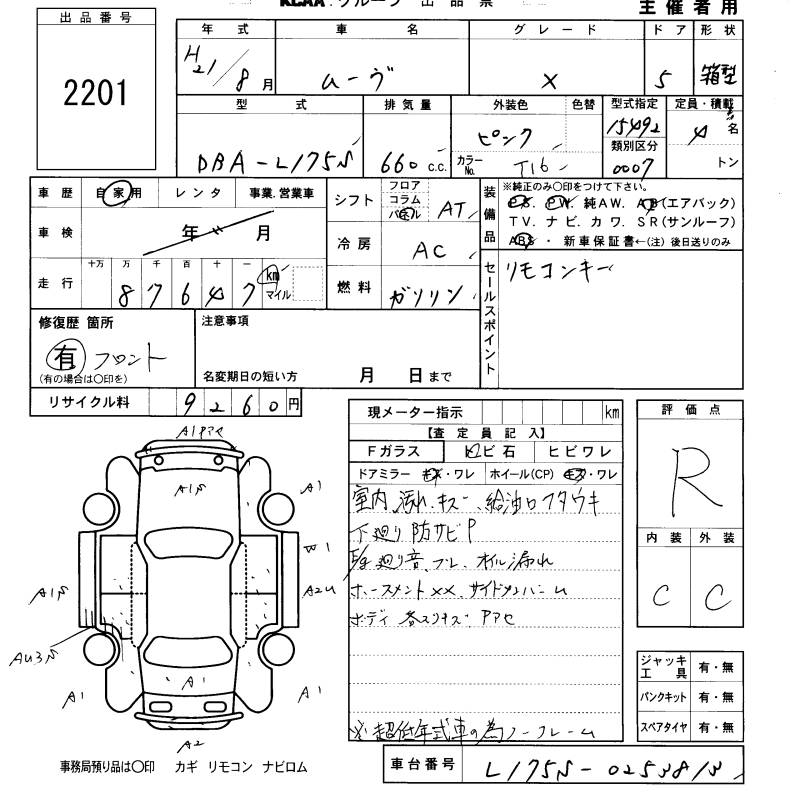 KCAA グループ 出品票
主催者用
出品番号
2201
年式 車名 グレード ドア 形状
H21/8月 ムーヴ X 5 箱型
型式 排気量 外装色 色替 型式指定 定員・積載
DBA-L175S 660 c.c. ピンク カラーNo. T16 15492 4名
類別区分
0007 トン
車歴 自家用 レンタ 事業.営業車
車検 年 月
走行 十万 万 千 百 十 一
87647 km マイル
シフト フロア コラム パネル AT
冷房 AC
燃料 ガソリン
装備品 ※純正のみ〇印をつけて下さい。
P.S. P.W. 純AW. AB(エアバック)
TV. ナビ. カワ. SR(サンルーフ)
ABS ・ 新車保証書←(注) 後日送りのみ
セールスポイント
リモコンキー
修復歴 箇所
有 フロント
(有の場合は〇印を)
注意事項
名変期日の短い方 月 日まで
リサイクル料 9260円
現メーター指示 km
【査定員記入】
Fガラス トビ石 ヒビワレ
ドアミラー キズ・ワレ ホイール(CP) キズ・ワレ
室内 汚れ.キズ 給油口フタウキ
下廻り防サビP
廻り音.ブレ.オイル漏れ
XX.サイドメンバー
ボディ 各スリキズ.Pアセ
※超低年式車の為ノークレーム
評価点
R
内装 外装
C C
ジャッキ工具 有・無
パンクキット 有・無
スペアタイヤ 有・無
A1Pアセ
A1S
A1
W1
A1S
A2U
AU3S
A1
A1
A1
A2
事務局預り品は〇印 カギ リモコン ナビロム
車台番号 L175S-0253813